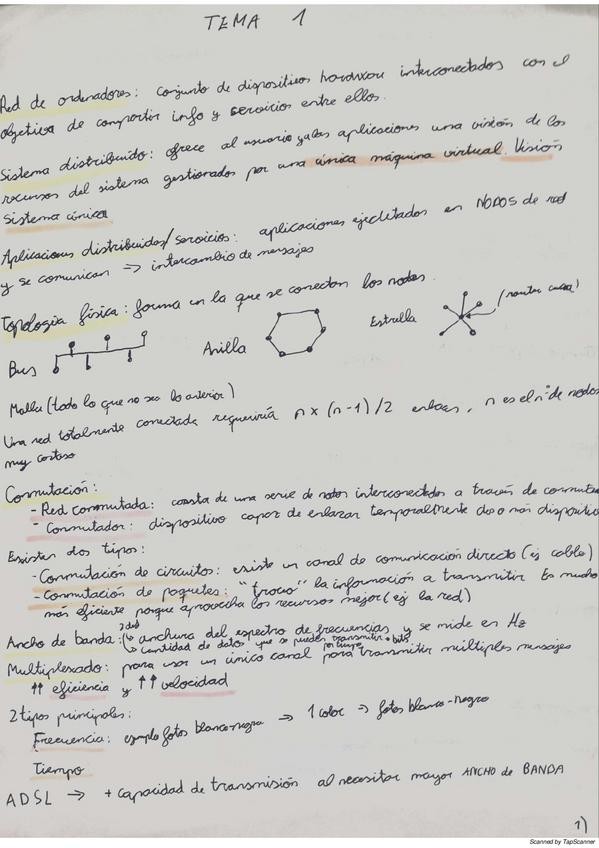 TEMA 1
Red de ordenadores: conjunto de dispositivos hardware interconectados con el
objetivo de compartir info y servicios entre ellos.
Sistema distribuido: ofrece al usuario y a las aplicaciones una visión de los
recursos del sistema gestionados por una única máquina virtual. Visión
sistema única
Aplicaciones distribuidas/servicios: aplicaciones ejecutadas en NODOS de red
y se comunican => intercambio de mensajes
Topología física: forma en la que se conectan los nodos.
Bus Anillo Estrella (router casa)
Malla (todo lo que no sea lo anterior)
Una red totalmente conectada requeriría n x (n-1)/2 enlaces, n es el nº de nodos
muy costoso
Conmutación:
- Red conmutada: consta de una serie de nodos interconectados a través de
- Conmutador: dispositivo capaz de enlazar temporalmente dos o más dispositivos
Existen dos tipos:
- Conmutación de circuitos: existe un canal de comunicación directo (ej cable)
- Conmutación de paquetes: "troceo" la información a transmitir Es mucho
más eficiente porque aprovecha los recursos mejor (ej la red)
Ancho de banda: ↳ anchura del espectro de frecuencias y se mide en Hz
↳ cantidad de datos que se pueden transmitir por bits
Multiplexado: para usar un único canal para transmitir múltiples mensajes
↑↑ eficiencia y ↑↑ velocidad
2 tipos principales:
Frecuencia: ejemplo fotos blanco-negro => 1 color => fotos blanco-negro
Tiempo
ADSL → + capacidad de transmisión al necesitar mayor ANCHO de BANDA
1)
Scanned by TapScanner